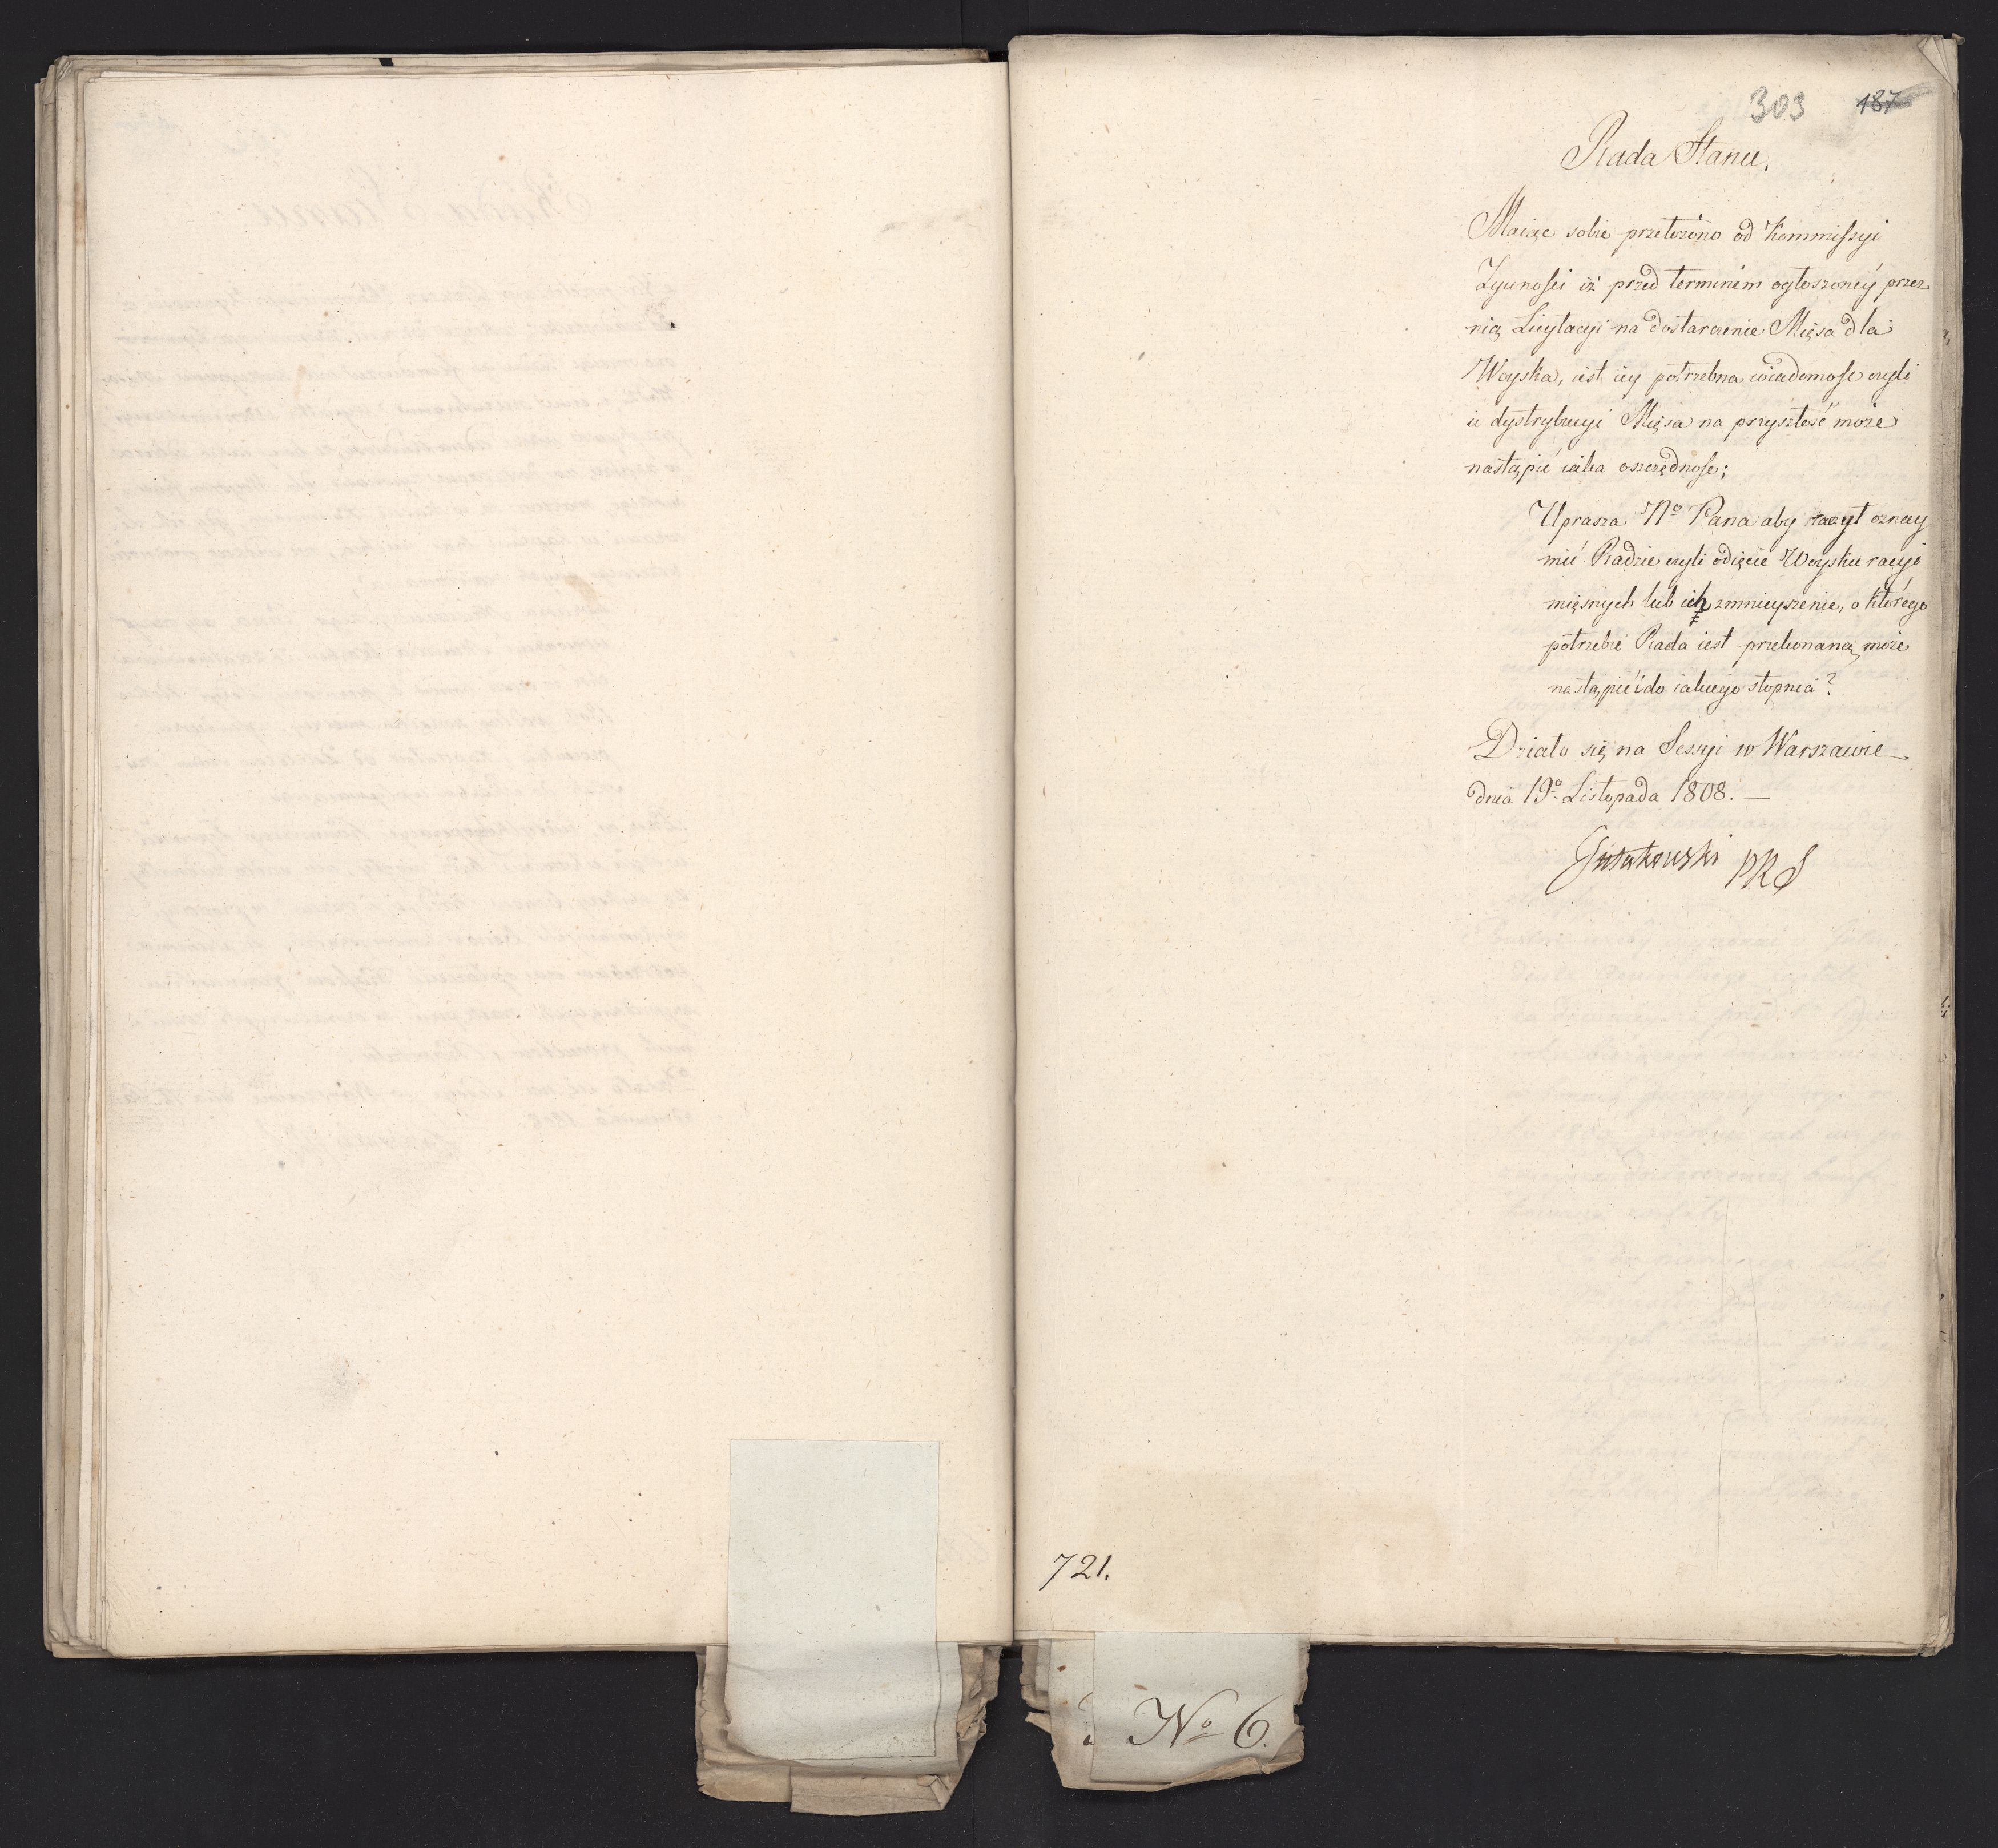 303 187
Rada Stanu.
Maiąc sobie przełożono od Kommissyi
Żywności iż przed terminem ogłoszoney przez
nią Licytacyi na dostarczenie Mięsa dla
Woyska, iest iey potrzebna wiadomość czyli
w dystrybucyi Mięsa na przyszłość może
nastąpić iaka oszczędność;
Uprasza No Pana aby raczył oznay
mić Radzie czyli odięcie Woysku racyi
mięsnych lub ich zmnieyszenie, o którego
potrzebie Rada iest przekonaną może
nastąpić i do iakiego stopnia?
Działo się na Sessyi w Warszawie
dnia 19o Listopada 1808. —
Gutakowski PRS
721.
No 6.